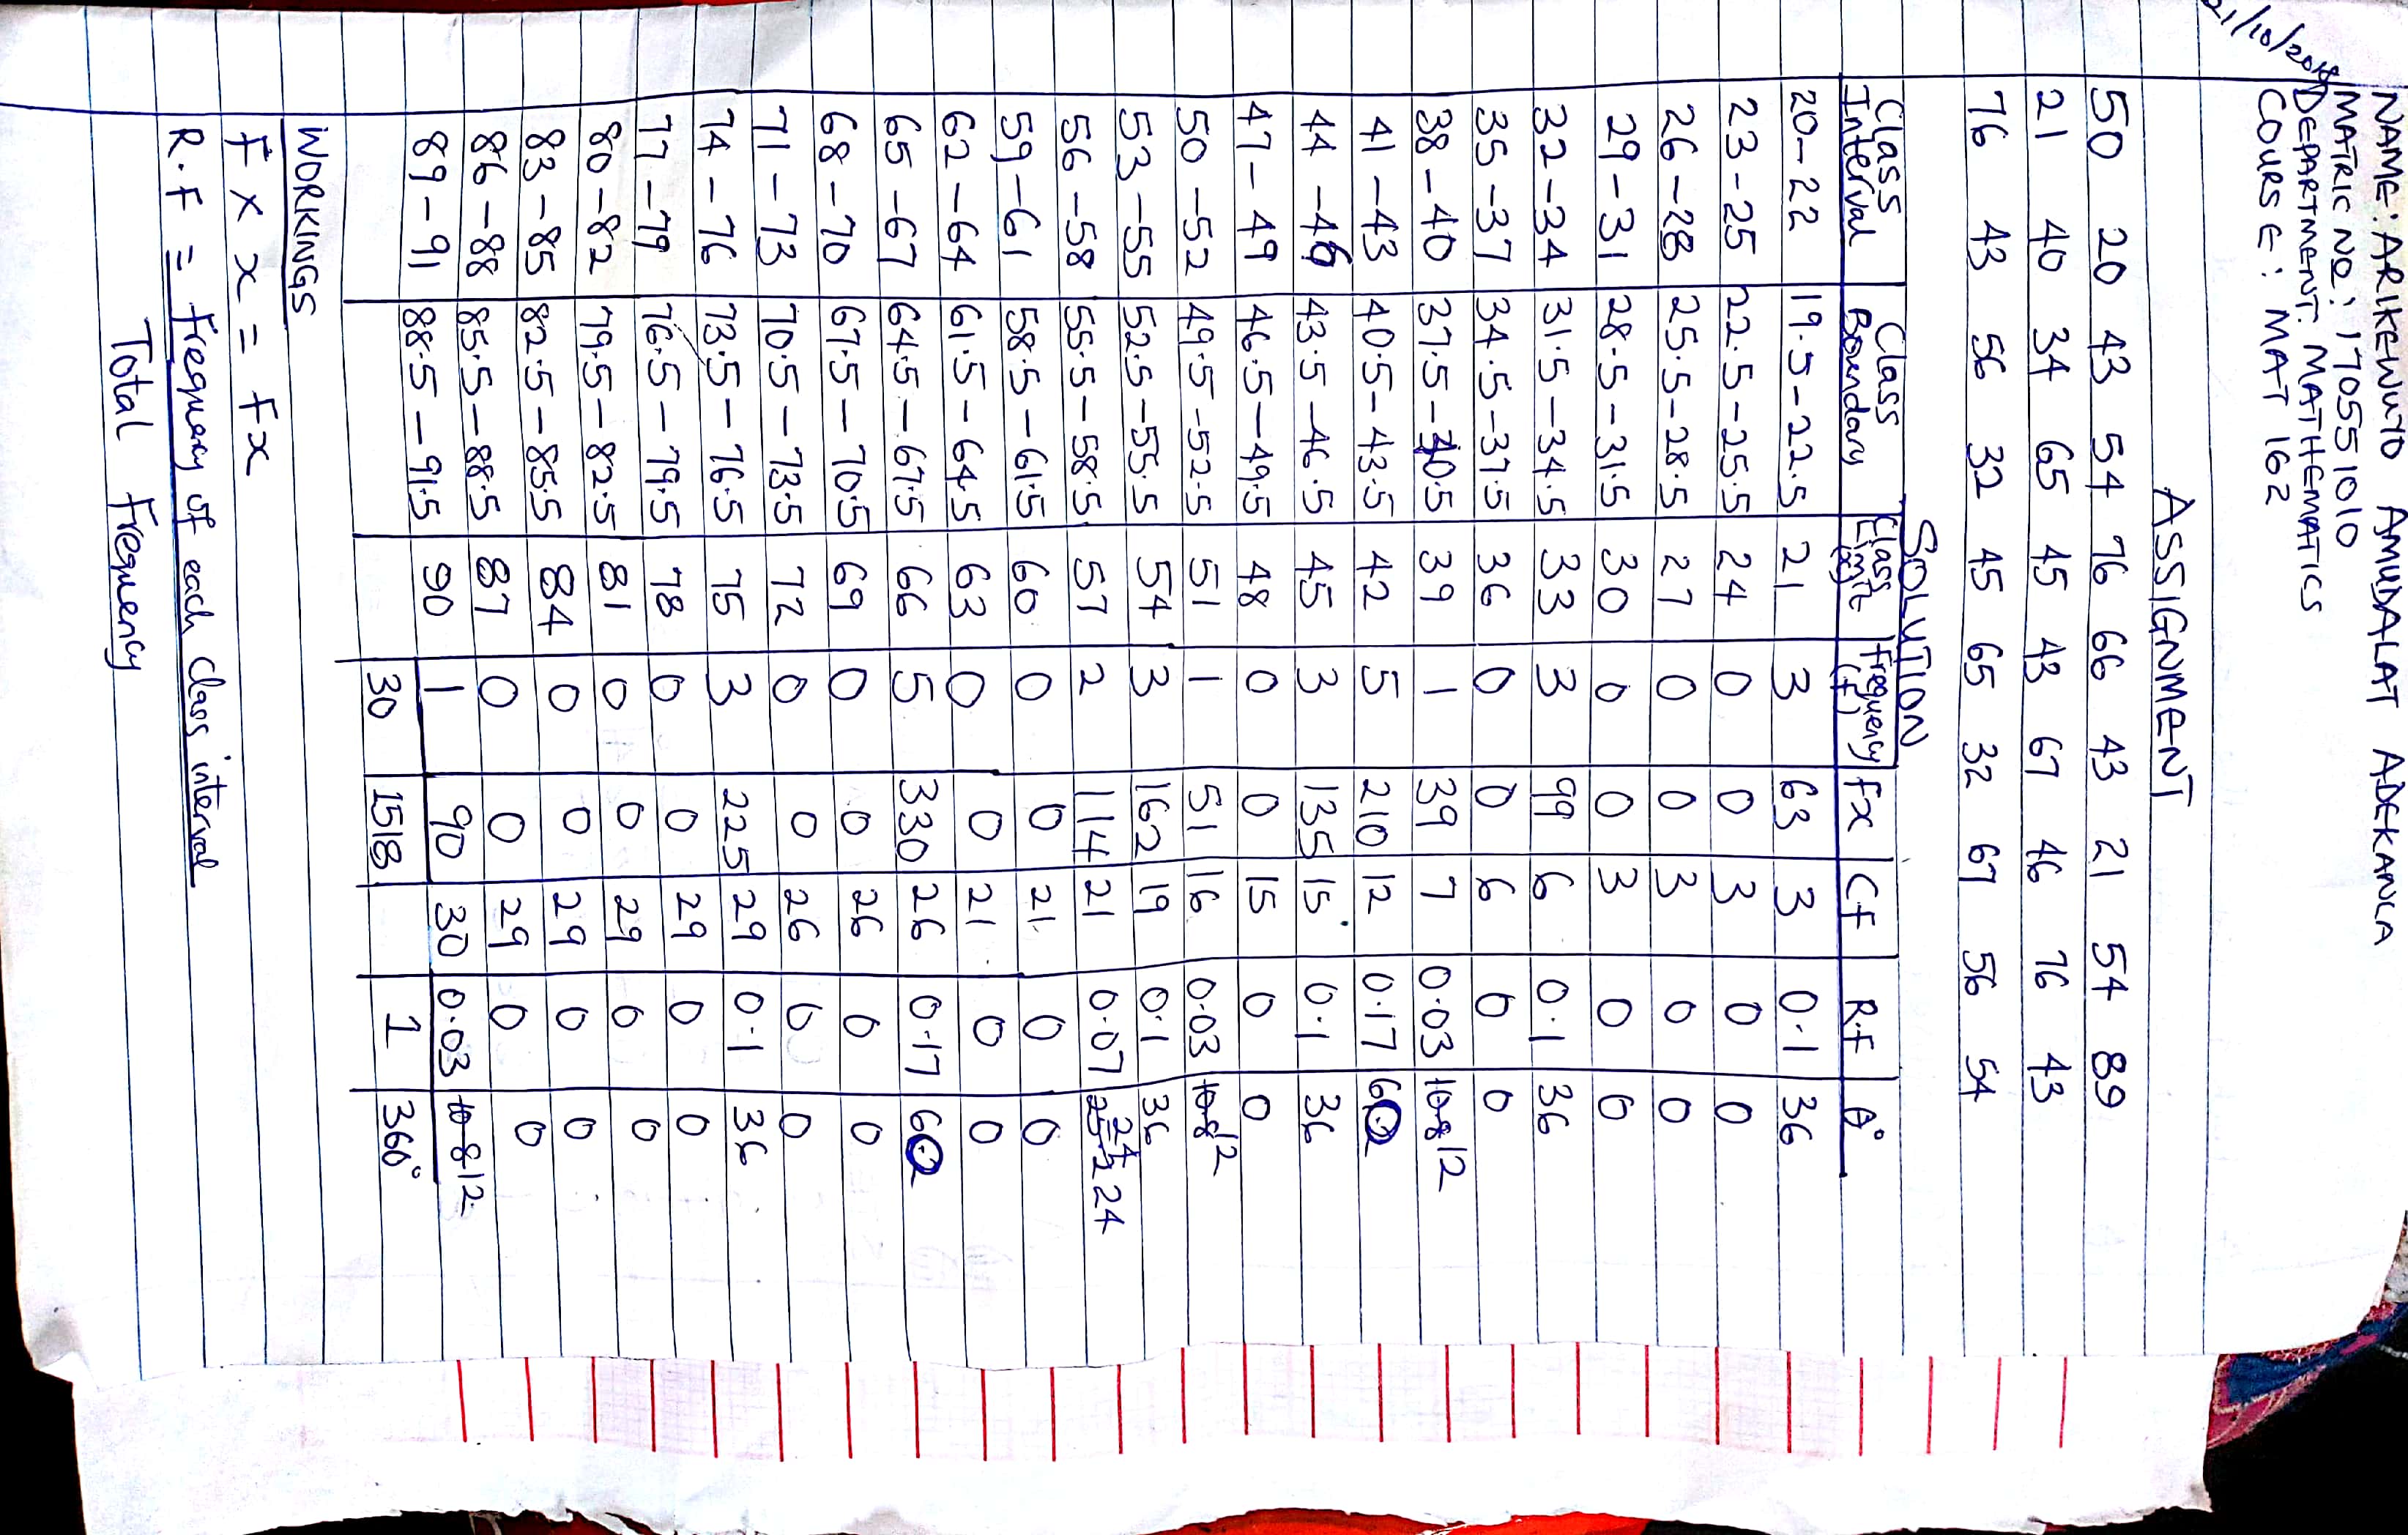 21/10/2018
NAME: ARIKEWUYO AMUDALAT ADEKANLA
MATRIC NO: 170551010
DEPARTMENT: MATHEMATICS
COURSE: MAT 162
ASSIGNMENT
50 20 43 54 76 66 43 21 54 89
21 40 34 65 45 43 67 46 76 43
76 43 56 32 45 65 32 67 56 54
SOLUTION
Class Interval Class Boundary Class Limit (x) Frequency (F) Fx CF R.F θ°
20-22 19.5-22.5 21 3 63 3 0.1 36
23-25 22.5-25.5 24 0 0 3 0 0
26-28 25.5-28.5 27 0 0 3 0 0
29-31 28.5-31.5 30 0 0 3 0 0
32-34 31.5-34.5 33 3 99 6 0.1 36
35-37 34.5-37.5 36 0 0 6 0 0
38-40 37.5-40.5 39 1 39 7 0.03 10.8 12
41-43 40.5-43.5 42 5 210 12 0.17 60
44-46 43.5-46.5 45 3 135 15 0.1 36
47-49 46.5-49.5 48 0 0 15 0 0
50-52 49.5-52.5 51 1 51 16 0.03 10.8 12
53-55 52.5-55.5 54 3 162 19 0.1 36
56-58 55.5-58.5 57 2 114 21 0.07 24 24
59-61 58.5-61.5 60 0 0 21 0 0
62-64 61.5-64.5 63 0 0 21 0 0
65-67 64.5-67.5 66 5 330 26 0.17 60
68-70 67.5-70.5 69 0 0 26 0 0
71-73 70.5-73.5 72 0 0 26 0 0
74-76 73.5-76.5 75 3 225 29 0.1 36
77-79 76.5-79.5 78 0 0 29 0 0
80-82 79.5-82.5 81 0 0 29 0 0
83-85 82.5-85.5 84 0 0 29 0 0
86-88 85.5-88.5 87 0 0 29 0 0
89-91 88.5-91.5 90 1 90 30 0.03 10.8 12
30 1518 1 360°
WORKINGS
F x x = Fx
R.F = Frequency of each class interval
Total Frequency